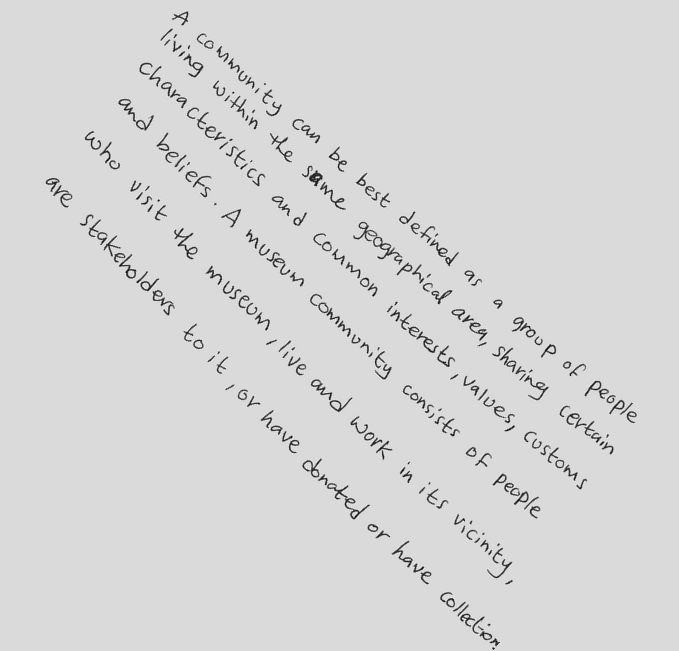 A community can be best defined as a group of people
living within the same geographical area, sharing certain
characteristics and common interests, values, customs
and beliefs. A museum community consists of people
who visit the museum, live and work in its vicinity,
are stakeholders to it, or have donated or have collection